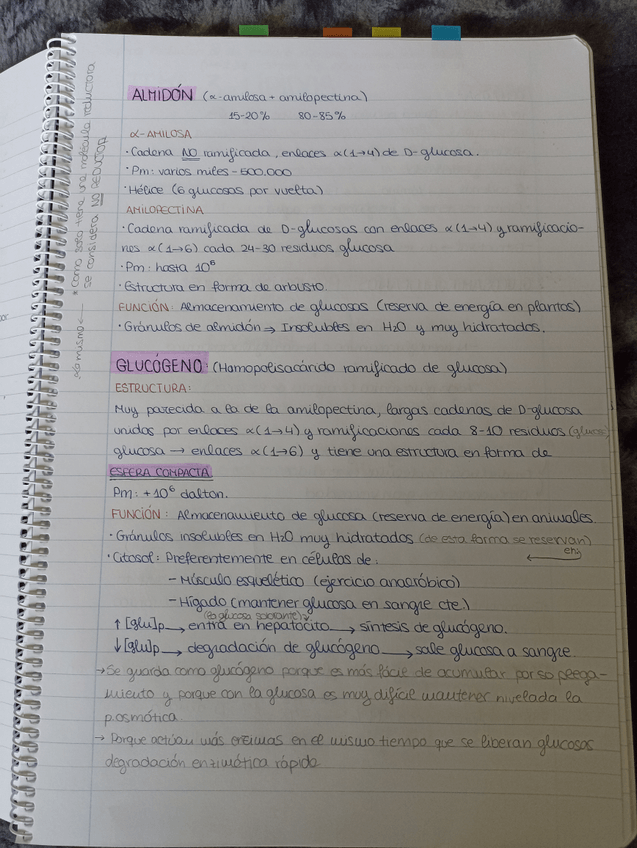 ALMIDÓN (α-amilosa + amilopectina)
15-20% 80-85%
α-AMILOSA
· Cadena NO ramificada, enlaces α(1→4) de D-glucosa.
· Pm: varios miles - 500.000
· Hélice (6 glucosas por vuelta)
AMILOPECTINA
· Cadena ramificada de D-glucosas con enlaces α(1→4) y ramificacio-
nes α(1→6) cada 24-30 residuos glucosa
· Pm: hasta 10⁶
· Estructura en forma de arbusto.
FUNCIÓN: Almacenamiento de glucosas (reserva de energía en plantas)
· Gránulos de almidón → Insolubles en H2O y muy hidratados.
GLUCÓGENO: (Homopolisacárido ramificado de glucosa)
ESTRUCTURA:
Muy parecida a la de la amilopectina, largas cadenas de D-glucosa
unidos por enlaces α(1→4) y ramificaciones cada 8-10 residuos
glucosa → enlaces α(1→6) y tiene una estructura en forma de
ESFERA COMPACTA
Pm: +10⁶ dalton.
FUNCIÓN: Almacenamiento de glucosa (reserva de energía) en animales.
· Gránulos insolubles en H2O muy hidratados (de esta forma se reservan)
· Citosol: Preferentemente en células de:
- Músculo esquelético (ejercicio anaeróbico)
- Hígado (mantener glucosa en sangre cte)
(la glucosa sobrante)
↑[glu]p → entra en hepatocito → síntesis de glucógeno.
↓[glu]p → degradación de glucógeno → sale glucosa a sangre.
→ Se guarda como glucógeno porque es más fácil de acumular por so peega-
miento y porque con la glucosa es muy difícil mantener nivelada la
p.osmótica.
→ Porque actúan más enzimas en el mismo tiempo que se liberan glucosas
degradación enzimática rápida
*Como solo tiene una molécula reductora
se considera NO REDUCTOR